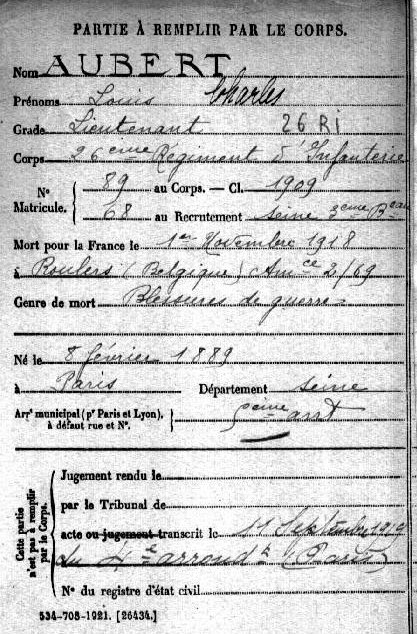 PARTIE À REMPLIR PAR LE CORPS.
Nom AUBERT
Prénoms Louis Charles
Grade Lieutenant 26 RI
Corps 26ème Régiment d'Infanterie
N° Matricule. { 89 au Corps. — Cl. 1909
68 au Recrutement Seine 3ème Beau
Mort pour la France le 1er Novembre 1918
à Roulers (Belgique) Amce 2/69
Genre de mort Blessures de guerre
Né le 8 février 1889
à Paris Département Seine
Arrt municipal (pr Paris et Lyon), à défaut rue et N°. { arrt
Cette partie n'est pas à remplir par le Corps.
Jugement rendu le
par le Tribunal de
acte ou jugement transcrit le 11 Septembre 1919
du 4e arrondt (Paris)
N° du registre d'état civil
534-708-1921. [26434.]